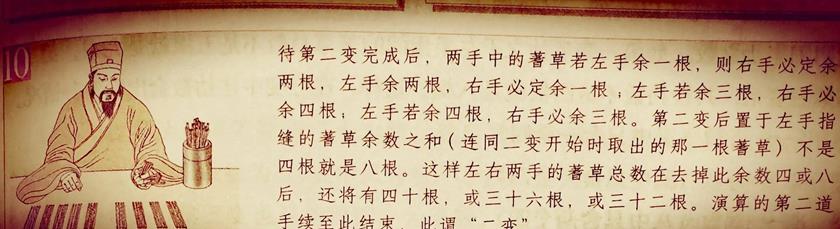 10
待第二变完成后，两手中的蓍草若左手余一根，则右手必定余
两根，左手余两根，右手必定余一根；左手若余三根，右手必
余四根；左手若余四根，右手必余三根。第二变后置于左手指
缝的蓍草余数之和（连同二变开始时取出的那一根蓍草）不是
四根就是八根。这样左右两手的蓍草总数在去掉此余数四或八
后，还将有四十根，或三十六根，或三十二根。演算的第二道
手续至此结束，此谓“二变”